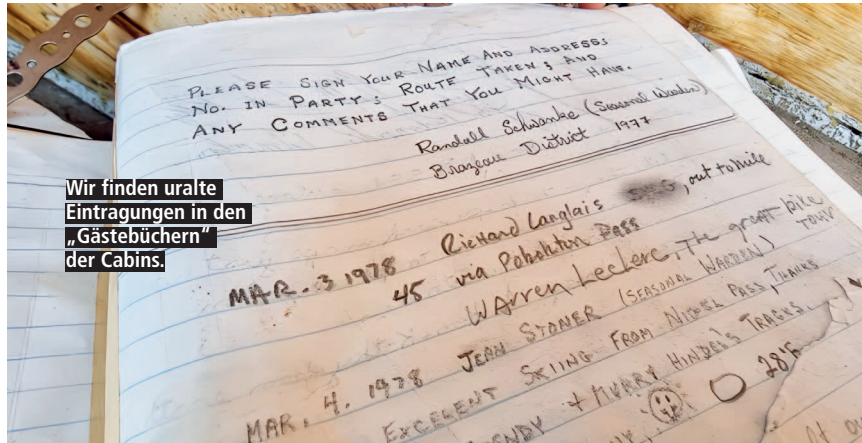 PLEASE SIGN YOUR NAME AND ADDRESS;
NO. IN PARTY; ROUTE TAKEN; AND
ANY COMMENTS THAT YOU MIGHT HAVE.
Randall Schwanke (Seasonal Warden)
Brazeau District 1977
Wir finden uralte
Eintragungen in den
„Gästebüchern“
der Cabins.
MAR. 3 1978 Richard Langlais , out to mile
45 via Pobokton PASS
WArren Leclerc, The great bike
TOUR
MAR. 4. 1978 JEAN STONER (SEASONAL WARDEN)
EXCELENT SKIING FROM NIGEL PASS, THANKS
+ MURRY HINDLE'S TRACKS.